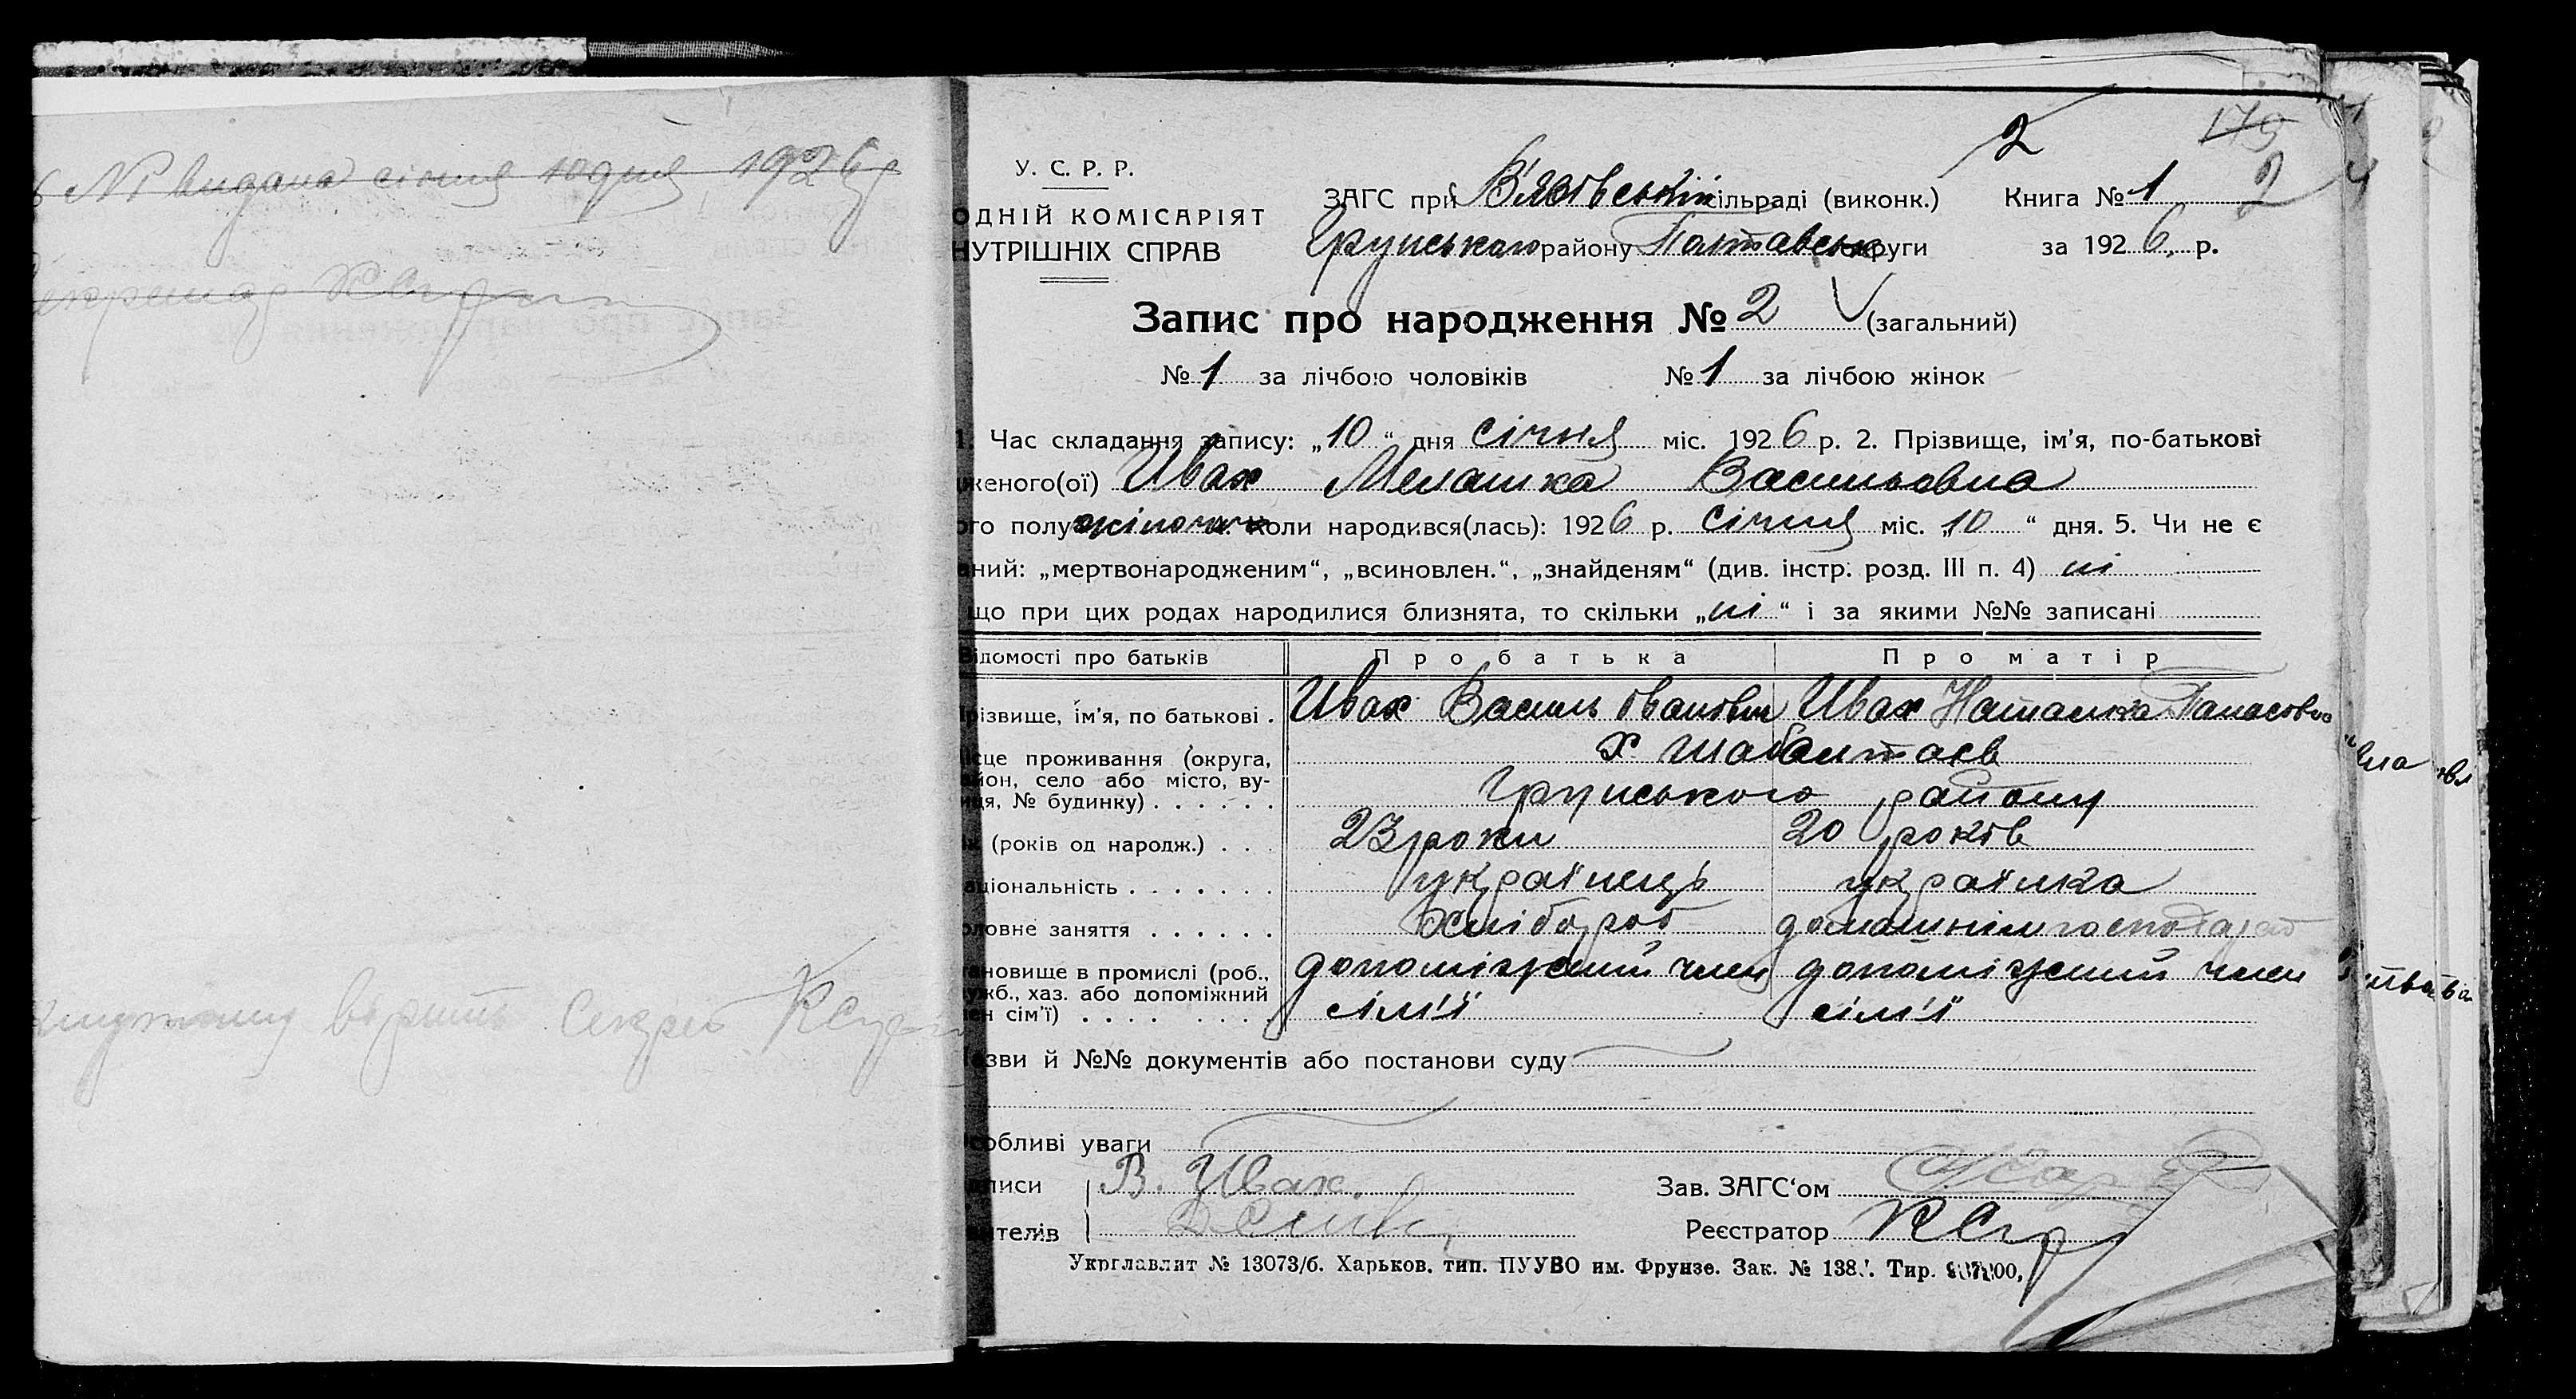 № 1 видана січня 10 дня 1926 р
2
175
2
У. С. Р. Р.
ОДНІЙ КОМІСАРІЯТ
НУТРІШНІХ СПРАВ
ЗАГС при В'язівській сільраді (виконк.) Книга № 1
Грунського району Полтавськ округи за 1926 р.
Запис про народження № 2 (загальний)
№ 1 за лічбою чоловіків № 1 за лічбою жінок
1. Час складання запису: „10“ дня січня міс. 1926 р. 2. Прізвище, ім'я, по-батькові
женого(ої) Ивах Мелашка Васильовна
ого полу жіночо Коли народився(лась): 1926 р. січня міс. „10“ дня. 5. Чи не є
аний: „мертвонародженим“, „всиновлен.“, „знайденям“ (див. інстр. розд. III п. 4) ні
що при цих родах народилися близнята, то скільки „ні“ і за якими №№ записані
Відомості про батьків Про батька Про матір
різвище, ім'я, по батькові . Ивах Василь Іванович Ивах Наталка Панасовна
ісце проживання (округа,
айон, село або місто, ву-
иця, № будинку) . . . . . .
Х. Шабалтаєв
Грунського району
ік (років од народж.) . . . 23 роки 20 років
аціональність . . . . . . . українець українка
оловне заняття . . . . . . Хлібороб домашнім господар
тановище в промислі (роб.,
ужб., хаз. або допоміжний
ен сім'ї) . . . . . . . .
допоміжний член сім'ї допоміжний член сім'ї
азви й №№ документів або постанови суду
собливі уваги
дписи В. Ивах.
ителів
Зав. ЗАГС'ом
Реєстратор
Укрглавлит № 13073/б. Харьков. тип. ПУУВО им. Фрунзе. Зак. № 138